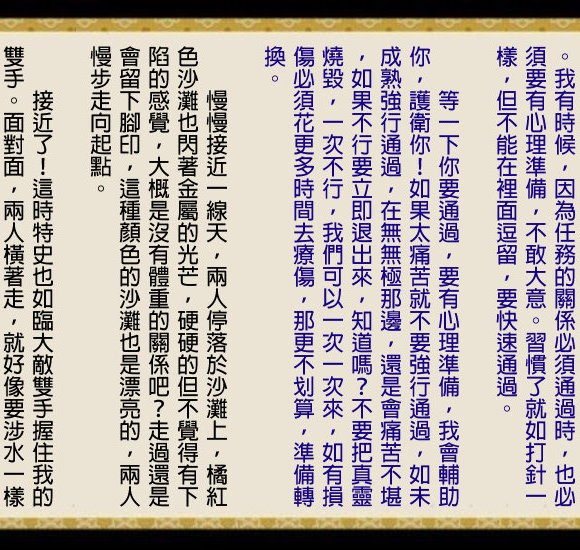 。我有時候，因為任務的關係必須通過時，也必
須要有心理準備，不敢大意。習慣了就如打針一
樣，但不能在裡面逗留，要快速通過。
等一下你要通過，要有心理準備，我會輔助
你，護衛你！如果太痛苦就不要強行通過，如未
成熟強行通過，在無無極那邊，還是會痛苦不堪
，如果不行要立即退出來，知道嗎？不要把真靈
燒毀，一次不行，我們可以一次一次來，如有損
傷必須花更多時間去療傷，那更不划算，準備轉
換。
慢慢接近一線天，兩人停落於沙灘上，橘紅
色沙灘也閃著金屬的光芒，硬硬的但不覺得有下
陷的感覺，大概是沒有體重的關係吧？走過還是
會留下腳印，這種顏色的沙灘也是漂亮的，兩人
慢步走向起點。
接近了！這時特史也如臨大敵雙手握住我的
雙手。面對面，兩人橫著走，就好像要涉水一樣